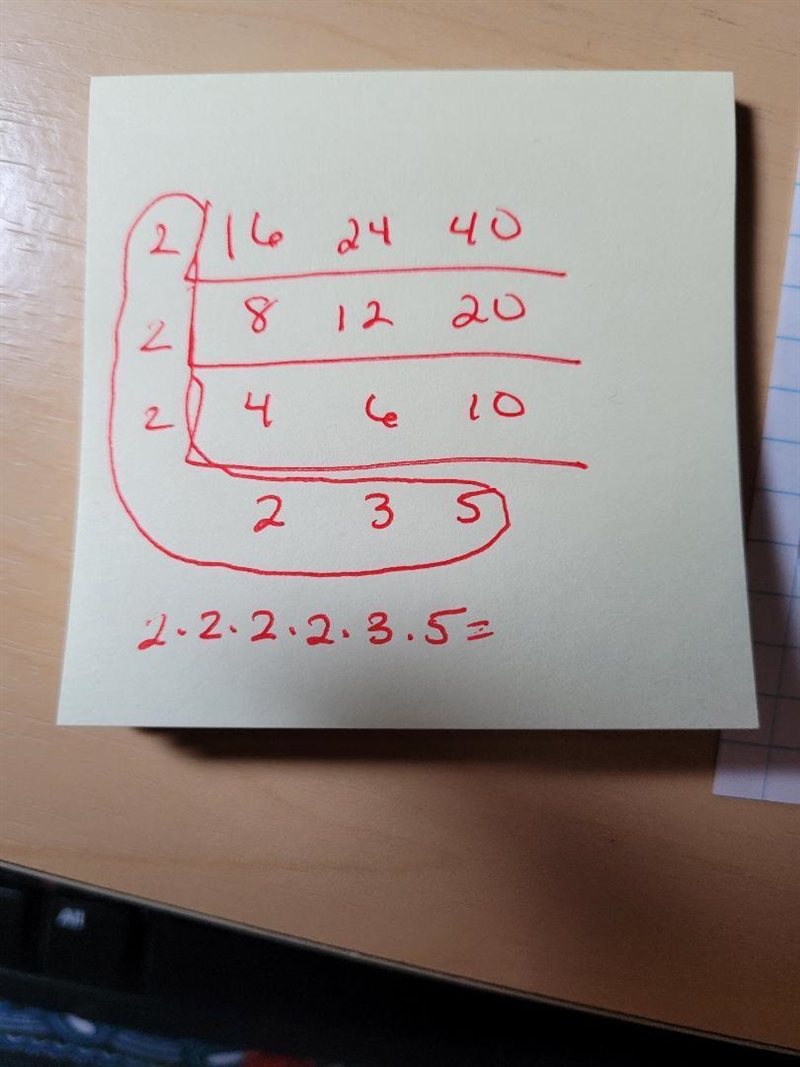 2 16 24 40
2 8 12 20
2 4 6 10
2 3 5
2·2·2·2·3·5=
Alt